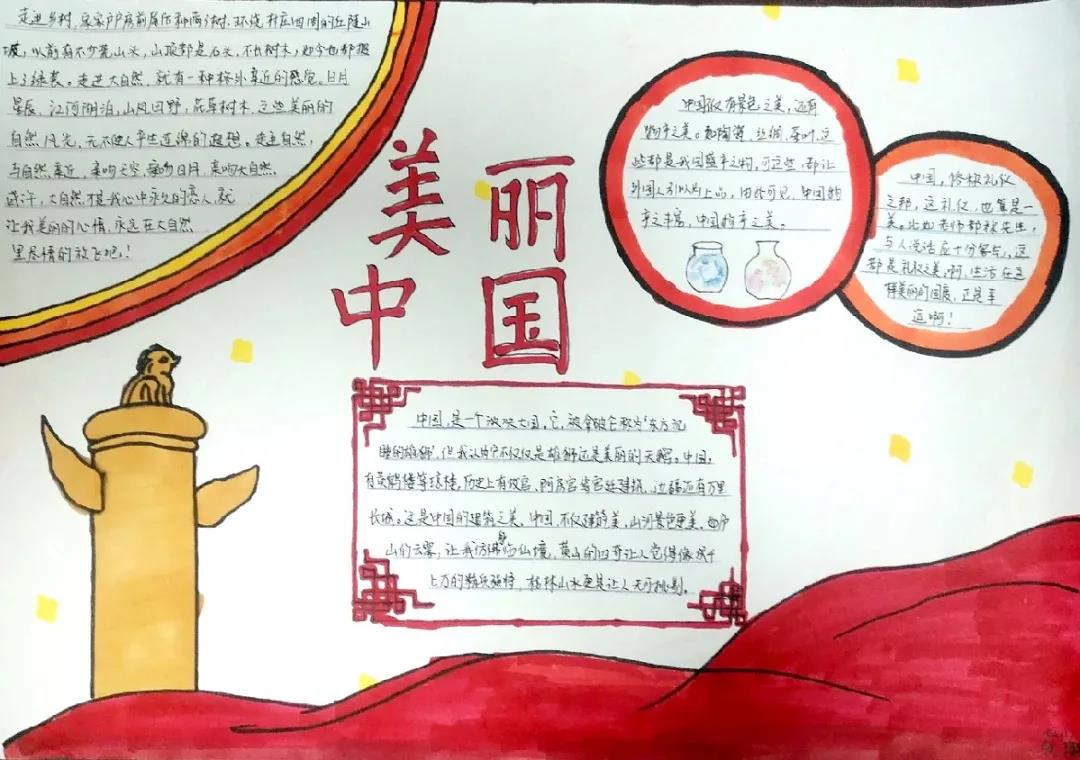 走进乡村，家家户户房前屋后都两三树，环绕村庄四周的丘陵山
坡，以前有不少荒山头，山顶都是石头，不长树木，如今也都披
上了绿装。走进大自然，就有一种格外亲近的感觉。日月
星辰、江河湖泊，山风田野，花草树木，这些美丽的
自然风光，无不使人产生连绵的遐想。走进自然，
与自然亲近，亲吻天空，亲吻日月，亲吻大自然。
或许，大自然不是我心中永久的恋人，就
让我美丽的心情，永远在大自然
里尽情的放飞吧！
美丽
中国
中国仅有景色之美，还有
物产之美。如陶瓷、丝绸、茶叶，这
些都是我国盛产之物，可这些，都让
外国人引以为上品，由此可见，中国物
产之丰富，中国物产之美。
中国，堪称礼仪
之邦，这礼仪，也算是一
美。比如老师都称先生，
与人说话应十分客气，这
都是礼仪之美。啊，生活在这
样美丽的国度，正是幸
运啊！
中国，是一个泱泱大国，它，被拿破仑称为“东方沉
睡的雄狮”，但我认为它不仅仅是雄狮还是美丽的天鹅。中国，
有黄鹤楼等琼楼，历史上有故宫、阿房宫等宫廷建筑，边疆还有万里
长城。这是中国的建筑之美。中国，不仅建筑美，山河景色更美。如庐
山的云雾，让我仿佛身临仙境，黄山的四奇让人觉得像成千
上万的精兵强将，桂林山水更是让人无可挑剔。